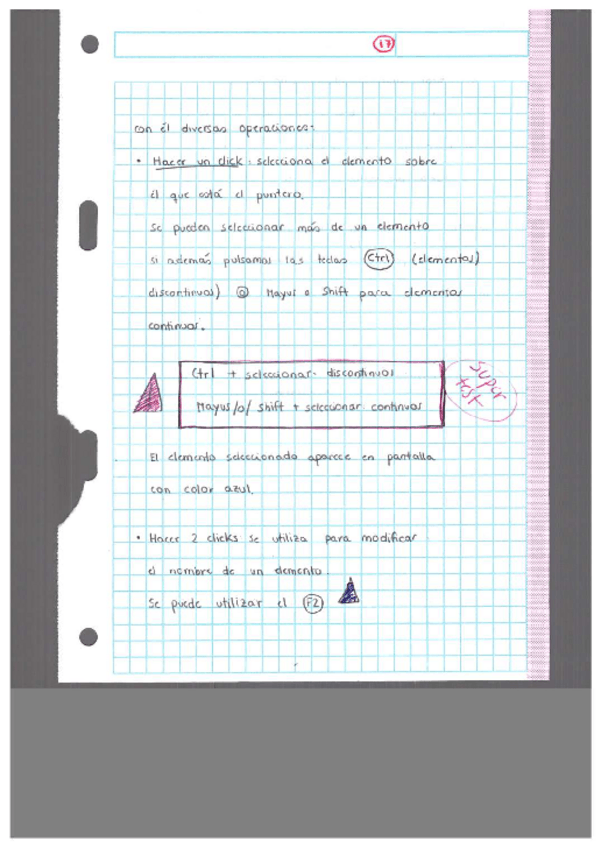 17
con él diversas operaciones:
• Hacer un click: selecciona el elemento sobre
el que está el puntero.
Se pueden seleccionar más de un elemento
si además pulsamos las teclas Ctrl (elementos)
discontinuos) o Mayus o Shift para elementos
continuos.
Ctrl + seleccionar discontinuos
Mayus/o/ Shift + seleccionar continuos
super
test
El elemento seleccionado aparece en pantalla
con color azul.
• Hacer 2 clicks se utiliza para modificar
el nombre de un elemento.
Se puede utilizar el F2